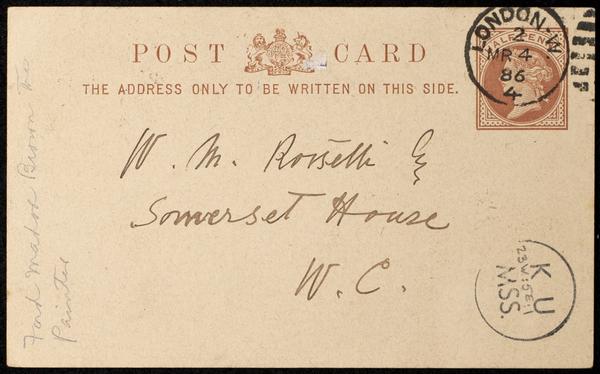 POST CARD
THE ADDRESS ONLY TO BE WRITTEN ON THIS SIDE.
HALFPENNY
LONDON·W
2
MR 4
86
4
W. M. Rossetti Esq
Somerset House
W. C.
Ford Madox Brown the
Painter
K U
MSS.